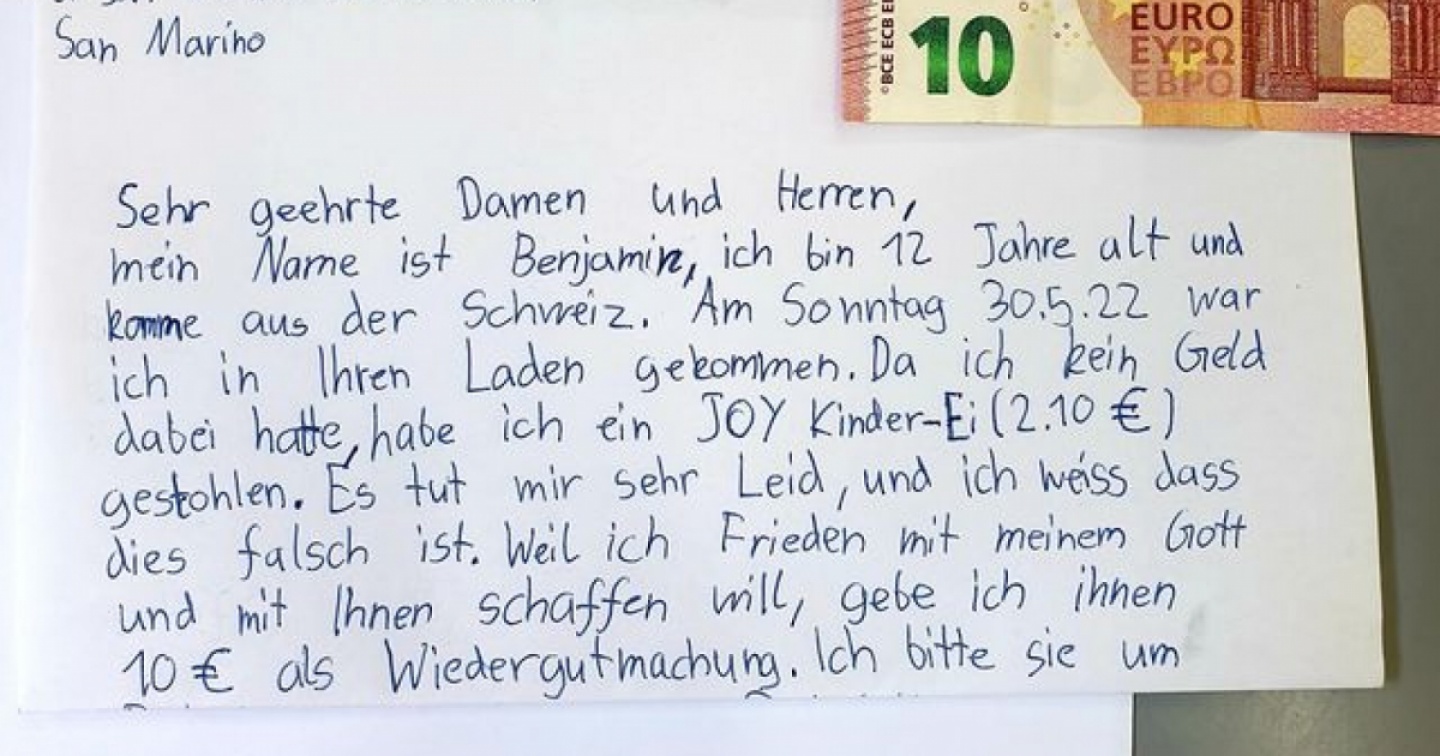 San Marino
©BCE ECB
10
EURO
ΕΥΡΩ
ЕВРО
Sehr geehrte Damen und Herren,
mein Name ist Benjamin, ich bin 12 Jahre alt und
komme aus der Schweiz. Am Sonntag 30.5.22 war
ich in Ihren Laden gekommen. Da ich kein Geld
dabei hatte, habe ich ein JOY Kinder-Ei (2.10 €)
gestohlen. Es tut mir sehr Leid, und ich weiss dass
dies falsch ist. Weil ich Frieden mit meinem Gott
und mit Ihnen schaffen will, gebe ich ihnen
10 € als Wiedergutmachung. Ich bitte sie um